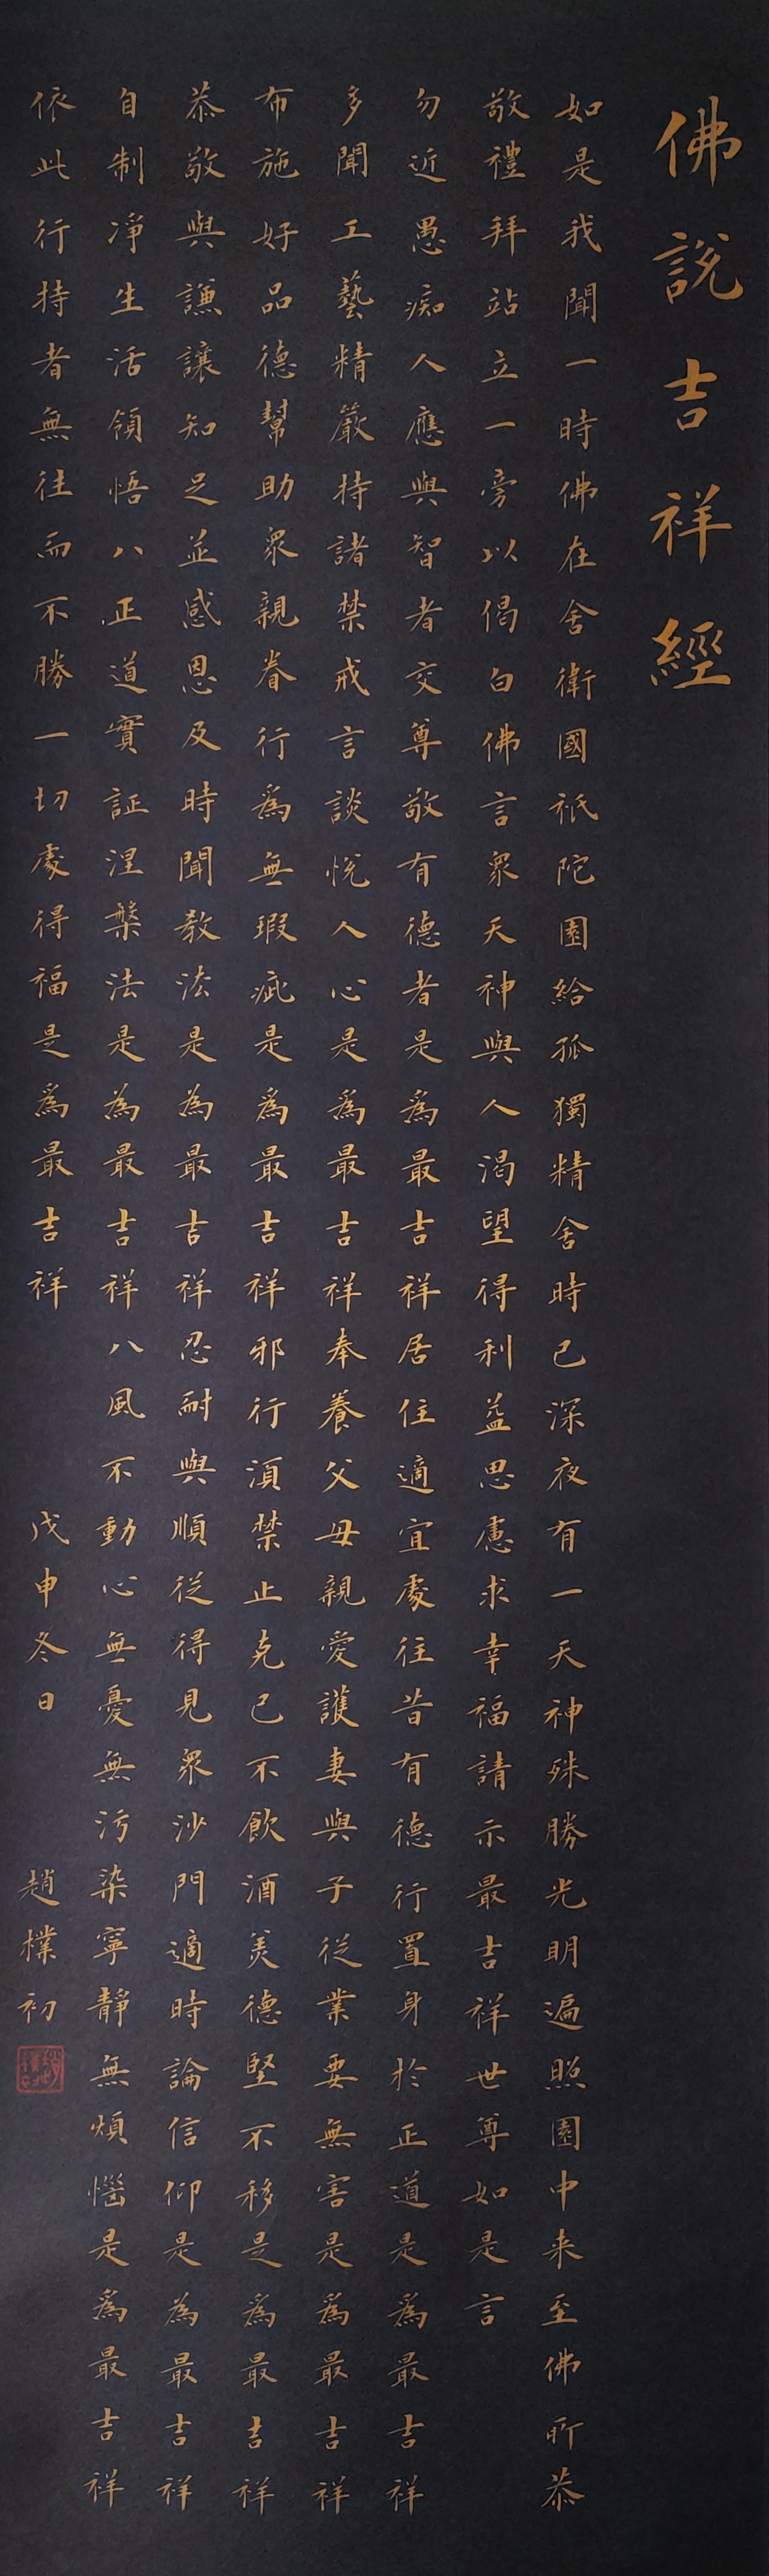 佛說吉祥經
如是我聞一時佛在舍衛國祇陀園給孤獨精舍時已深夜有一天神殊勝光明遍照園中来至佛所恭
敬禮拜站立一旁以偈白佛言眾天神與人渴望得利益思慮求幸福請示最吉祥世尊如是言
勿近愚痴人應與智者交尊敬有德者是為最吉祥居住適宜處往昔有德行置身於正道是為最吉祥
多聞工藝精嚴持諸禁戒言談悅人心是為最吉祥奉養父母親愛護妻與子從業要無害是為最吉祥
布施好品德幫助眾親眷行為無瑕疵是為最吉祥邪行須禁止克己不飲酒美德堅不移是為最吉祥
恭敬與謙讓知足並感恩及時聞教法是為最吉祥忍耐與順從得見眾沙門適時論信仰是為最吉祥
自制淨生活領悟八正道實証涅槃法是為最吉祥八風不動心無憂無污染寧靜無煩惱是為最吉祥
依此行持者無往而不勝一切處得福是為最吉祥 戊申冬日 趙樸初